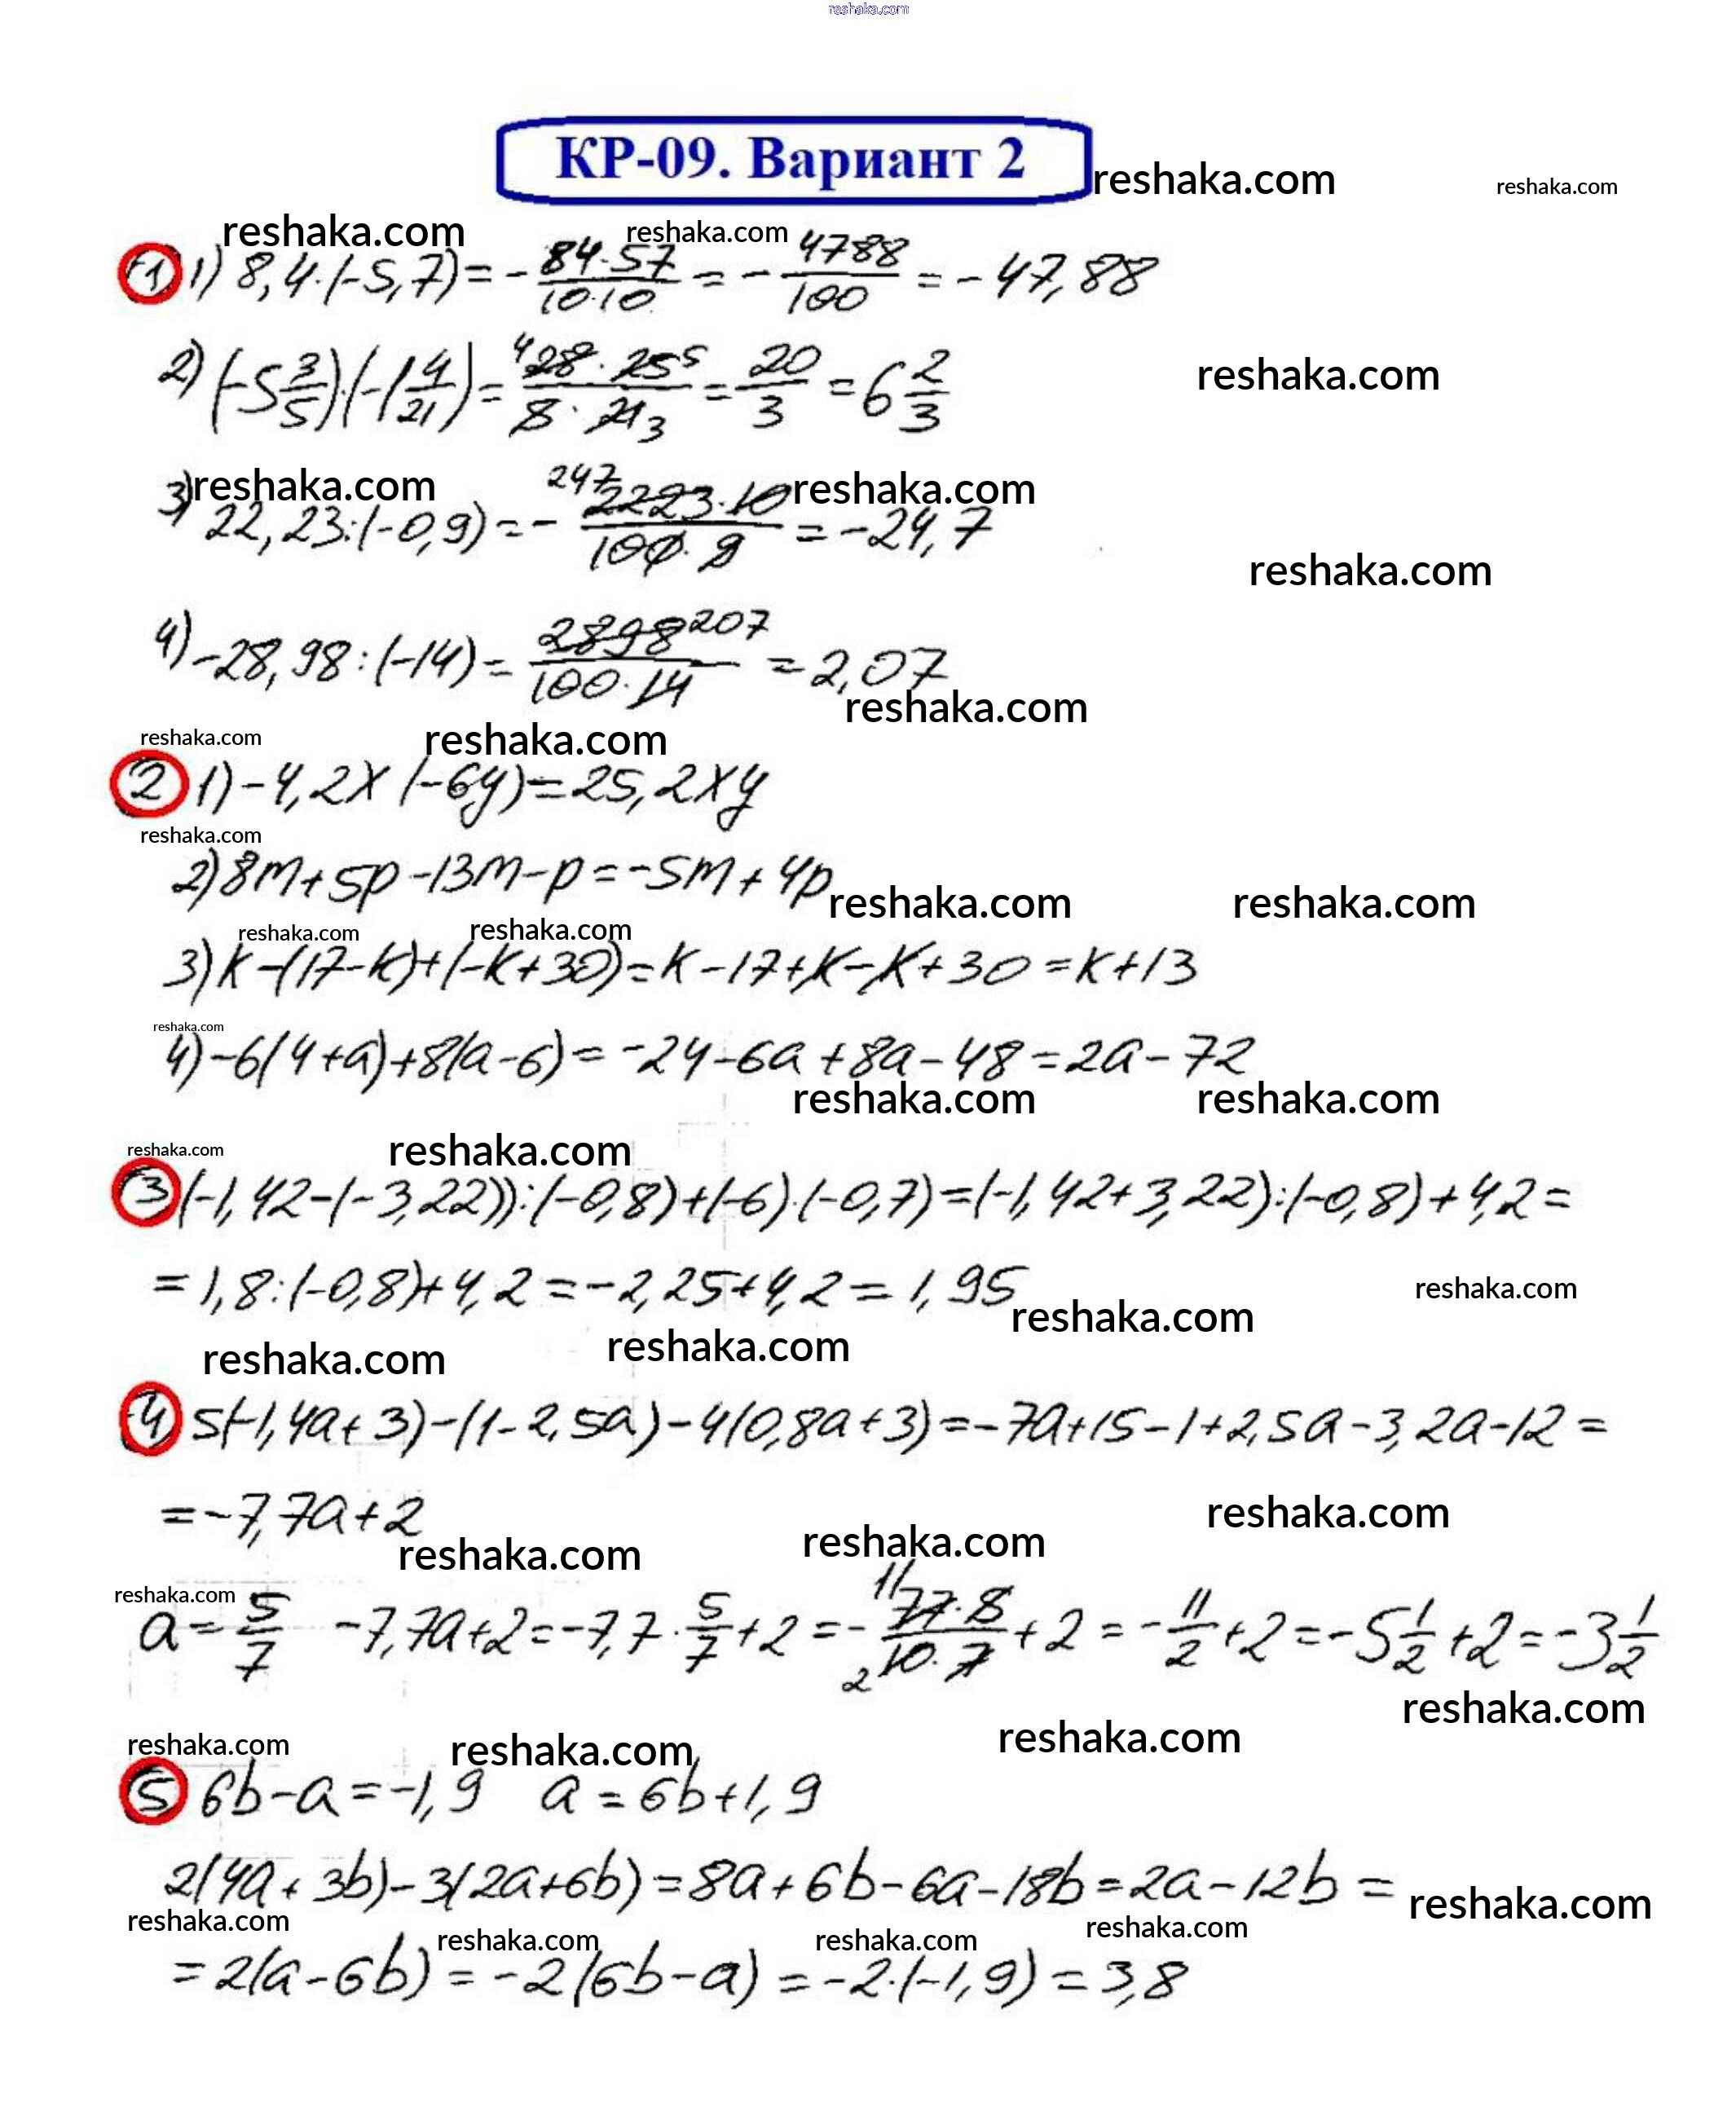 reshaka.com
КР-09. Вариант 2
reshaka.com
reshaka.com
reshaka.com
reshaka.com
1 1) 8,4·(-5,7)=-84·57/10·10=-4788/100=-47,88
2) (-5 3/5)·(-1 4/21)=4 28·25 5/5·21 3=20/3=6 2/3
reshaka.com
reshaka.com
reshaka.com
3) 22,23:(-0,9)=-247 2223·10/100·9=-24,7
reshaka.com
4) -28,98:(-14)=2898 207/100·14=2,07
reshaka.com
reshaka.com
reshaka.com
2 1) -4,2x(-6y)=25,2xy
reshaka.com
2) 8m+5p-13m-p=-5m+4p
reshaka.com
reshaka.com
reshaka.com
reshaka.com
3) k-(17-k)+(-k+30)=k-17+k-k+30=k+13
reshaka.com
4) -6(4+a)+8(a-6)=-24-6a+8a-48=2a-72
reshaka.com
reshaka.com
reshaka.com
reshaka.com
3 (-1,42-(-3,22)):(-0,8)+(-6)·(-0,7)=(-1,42+3,22):(-0,8)+4,2=
=1,8:(-0,8)+4,2=-2,25+4,2=1,95
reshaka.com
reshaka.com
reshaka.com
reshaka.com
4 5(-1,4a+3)-(1-2,5a)-4(0,8a+3)=-7a+15-1+2,5a-3,2a-12=
=-7,7a+2
reshaka.com
reshaka.com
reshaka.com
reshaka.com
a=5/7 -7,7a+2=-7,7·5/7+2=-11 77·5/2 10·7+2=-11/2+2=-5 1/2+2=-3 1/2
reshaka.com
reshaka.com
reshaka.com
reshaka.com
5 6b-a=-1,9 a=6b+1,9
2(4a+3b)-3(2a+6b)=8a+6b-6a-18b=2a-12b=
reshaka.com
reshaka.com
reshaka.com
reshaka.com
reshaka.com
=2(a-6b)=-2(6b-a)=-2·(-1,9)=3,8